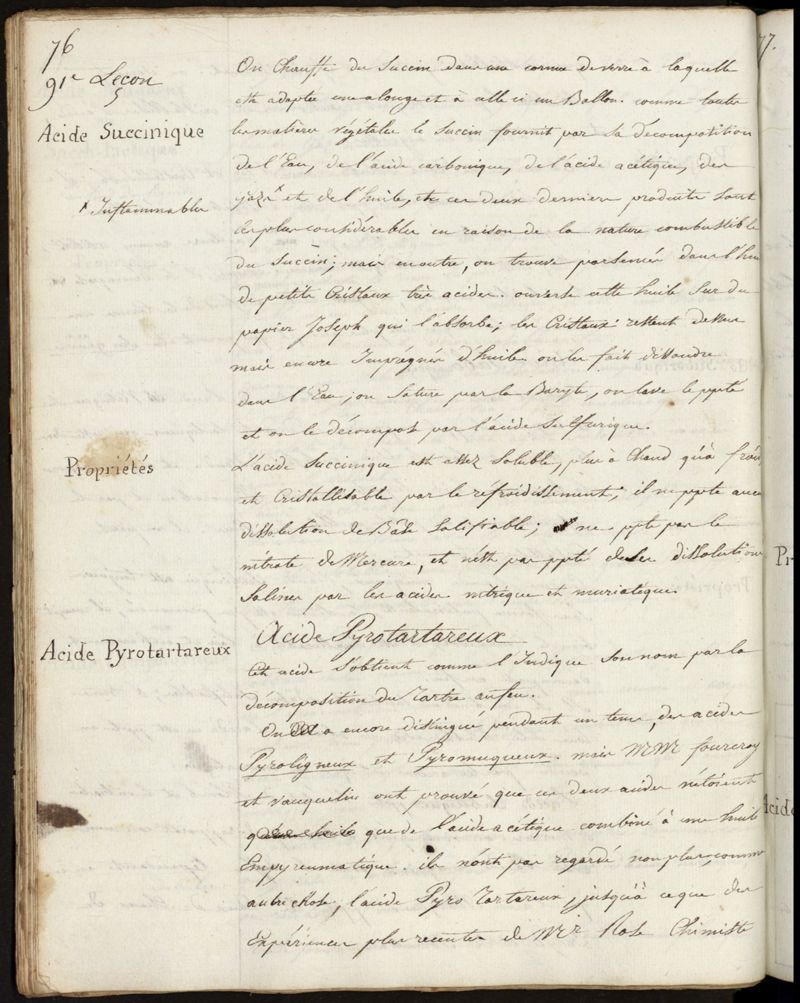 76
91e Leçon
Acide Succinique
On Chauffe du Succin dans une cornue de verre à laquelle
est adaptée une alonge et à celle ci un Ballon. comme toutes
les matières végétales le Succin fournit par sa décomposition
de l'Eau, de l'acide carbonique, de l'acide acétique, des
gazs x et de l'huile, ces deux derniers produits sont
x Inflammables
les plus considérables en raison de la nature combustible
du Succin; mais en outre, on trouve parsemés dans l'hu
de petits Cristaux très acides. on verse cette huile sur du
papier Joseph qui l'absorbe; les Cristaux restent dessus
mais encore Imprégnés d'huile on les fait dissoudre
dans l'Eau; on sature par la Baryte, on lave le ppté
et on le décompose par l'acide Sulfurique.
Propriétés
L'acide Succinique est assez soluble, plus à Chaud qu'à froid
et Cristallisable par le refroidissement; il ne ppte aucu
dissolution de Base Salifiable; ne ppte pas le
nitrate de Mercure, et n'est pas ppté de ses dissolutions
Salines par les acides nitrique et muriatique.
Acide Pyrotartareux
Acide Pyrotartareux
Cet acide s'obtient comme l'Indique son nom par la
décomposition du Tartre au feu.
On a encore distingué pendant un tems, des acides
Pyroligneux et Pyromuqueux. mais MM fourcroy
et vauquelin ont prouvé que ces deux acides n'étoient
que de l'acide acétique combiné à une huile
Empyreumatique. ils n'ont pas regardé non plus, comme
autre chose, l'acide Pyro Tartareux, jusqu'à ce que des
Expériences plus récentes de Mr Rose Chimiste
77.
Pr
Acide